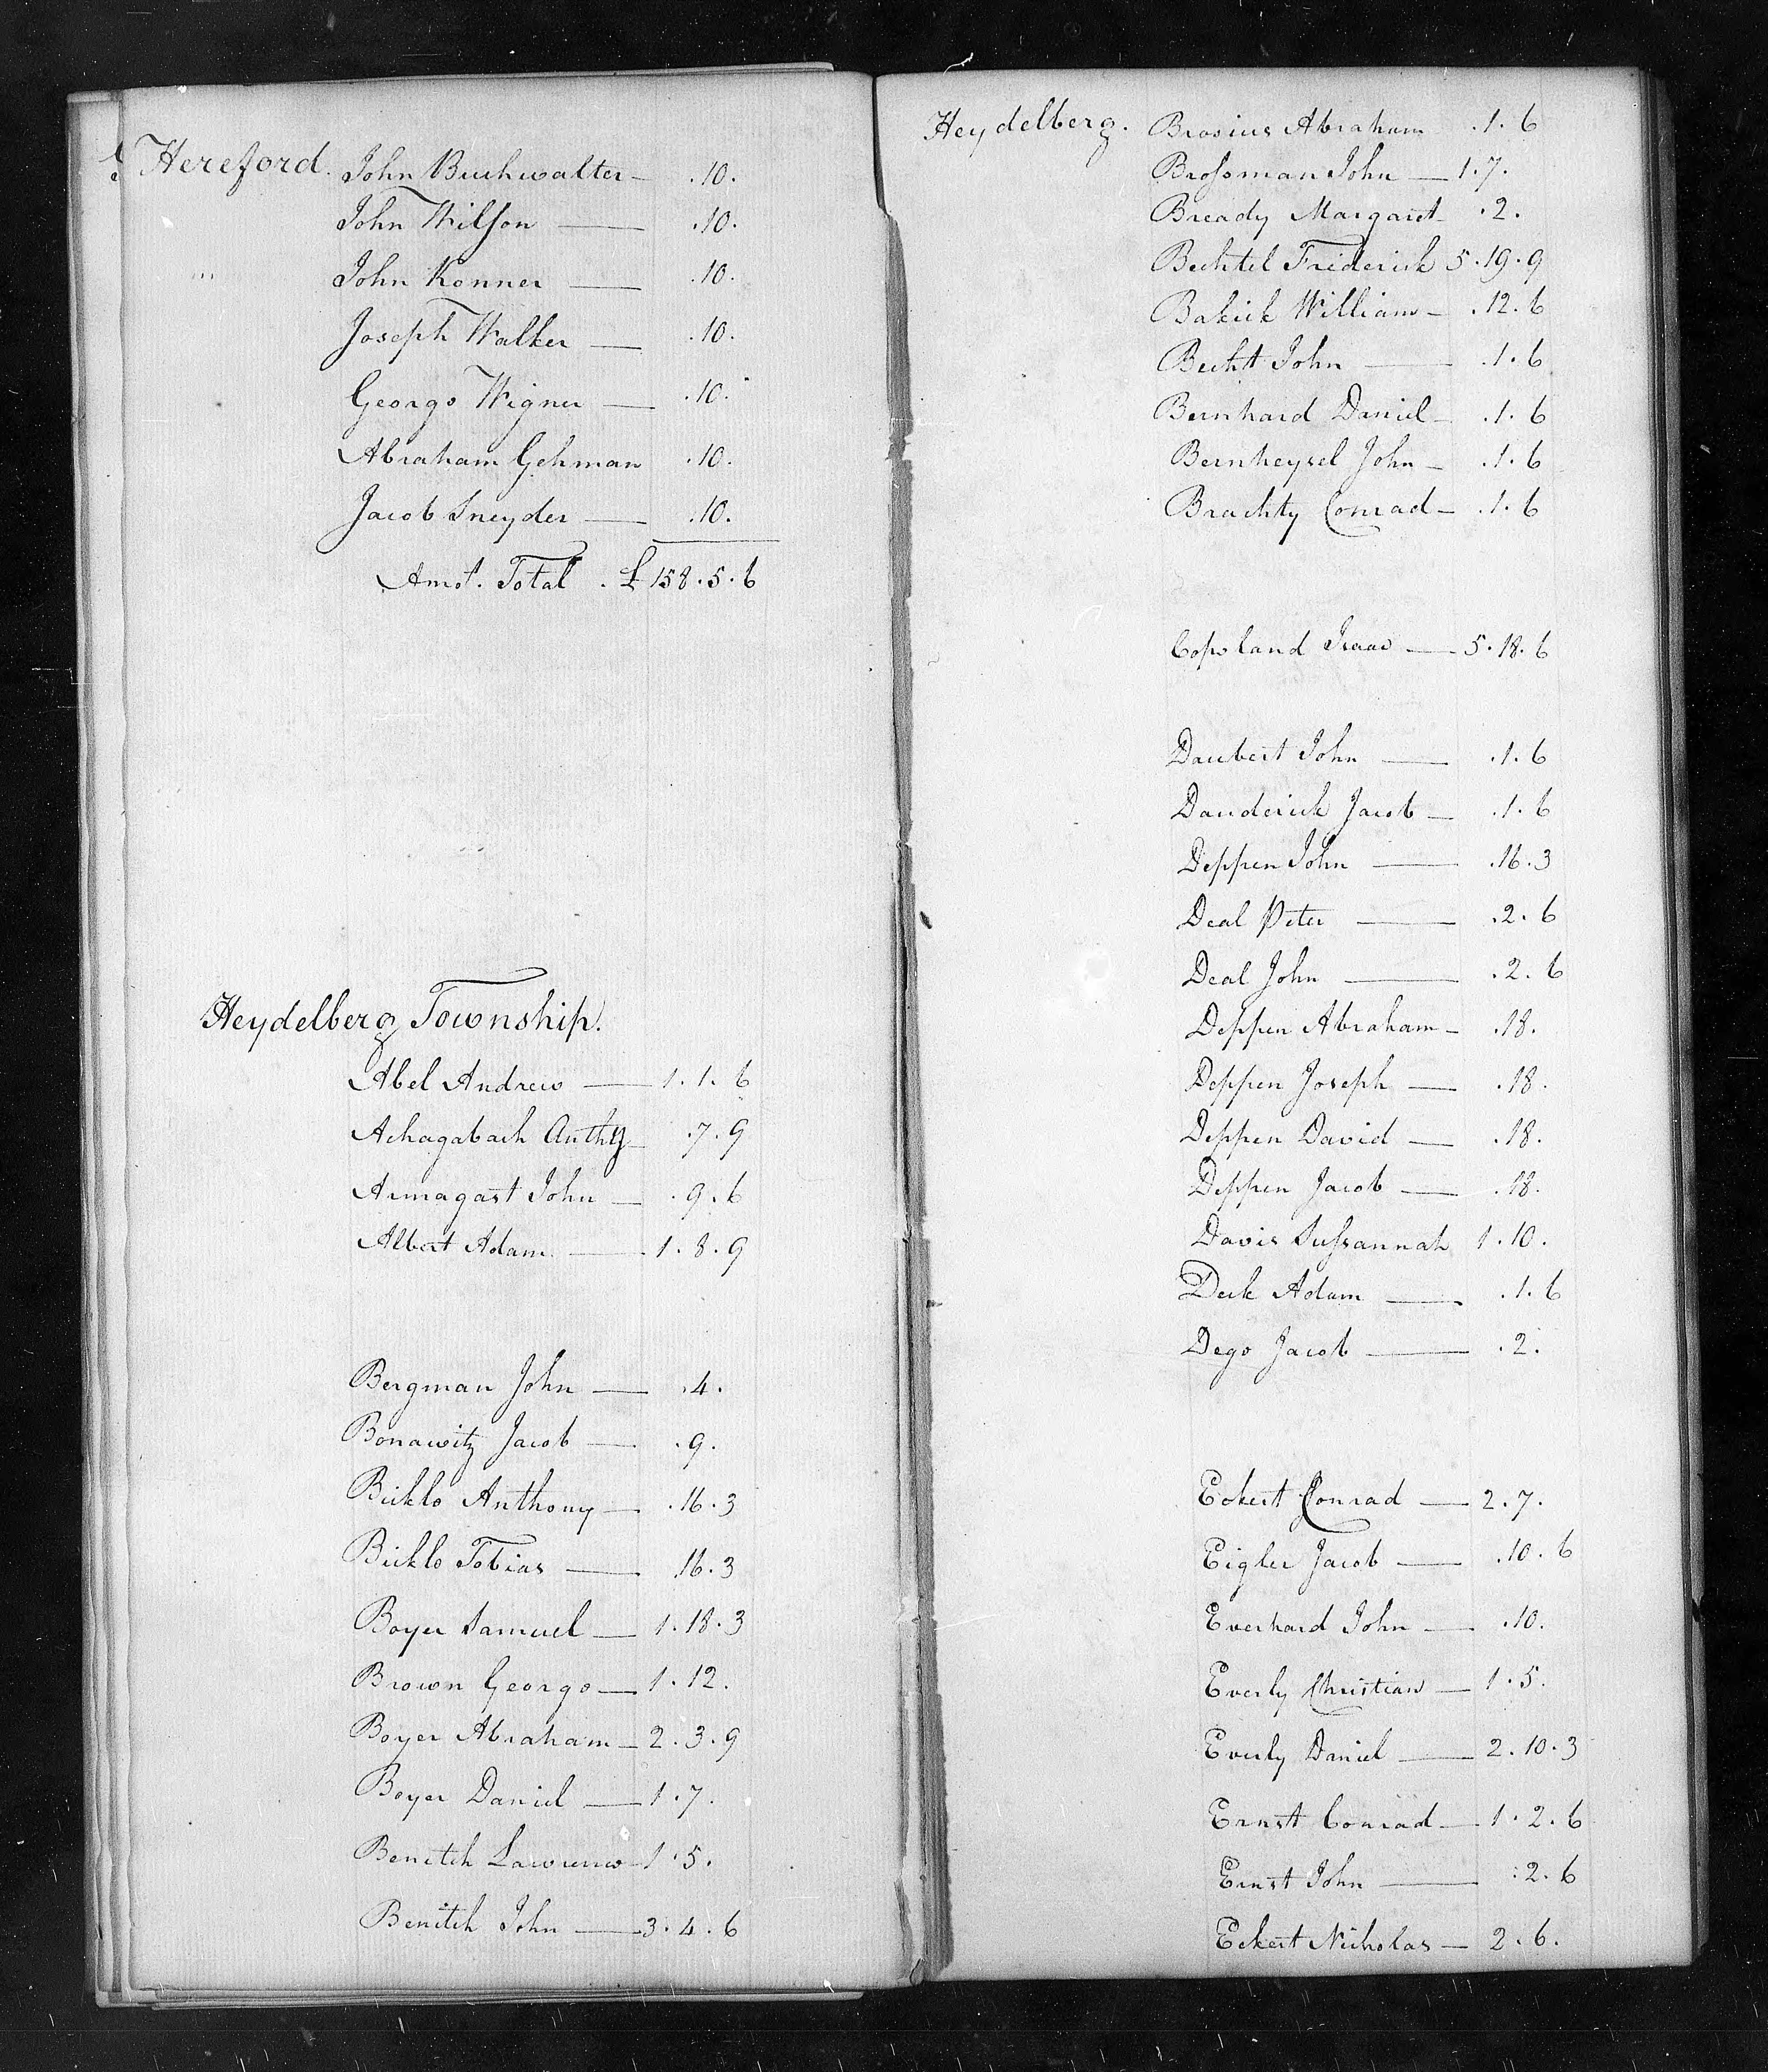 Hereford. John Buchwalter — .10.
John Wilson — .10.
John Konner — .10.
Joseph Walker — .10.
George Wigner — .10.
Abraham Gehman .10.
Jacob Sneyder — .10.
Amot. Total . £ 158.5.6
Heydelberg Township.
Abel Andrew — 1.1.6
Achagabach Anthy — .7.9
Armagast John — .9.6
Albert Adam — 1.8.9
Bergman John — .4.
Bonawitz Jacob — .9.
Bickle Anthony — .16.3
Bickle Tobias — .16.3
Boyer Samuel — 1.18.3
Brown George — 1.12.
Boyer Abraham — 2.3.9
Boyer Daniel — 1.7.
Benetch Lawrence — 1.5.
Benetch John — 3.4.6
Heydelberg. Brosius Abraham .1.6
Brossman John — 1.7.
Bready Margaret — .2.
Bechtel Frederick 5.19.9
Bakick William — .12.6
Becht John — .1.6
Bernhard Daniel — .1.6
Bernheysel John — .1.6
Brachty Conrad — .1.6
Copeland Isaac — 5.18.6
Daubert John — .1.6
Dauderick Jacob — .1.6
Deppen John — .16.3
Deal Peter — .2.6
Deal John — .2.6
Deppen Abraham — .18.
Deppen Joseph — .18.
Deppen David — .18.
Deppen Jacob — .18.
Davis Sussannah 1.10.
Deck Adam — .1.6
Dego Jacob — .2.
Eckert Conrad — 2.7.
Eigler Jacob — .10.6
Everhard John — .10.
Everly Christian — 1.5.
Everly Daniel — 2.10.3
Ernst Conrad — 1.2.6
Ernst John — .2.6
Eckert Nicholas — 2.6.